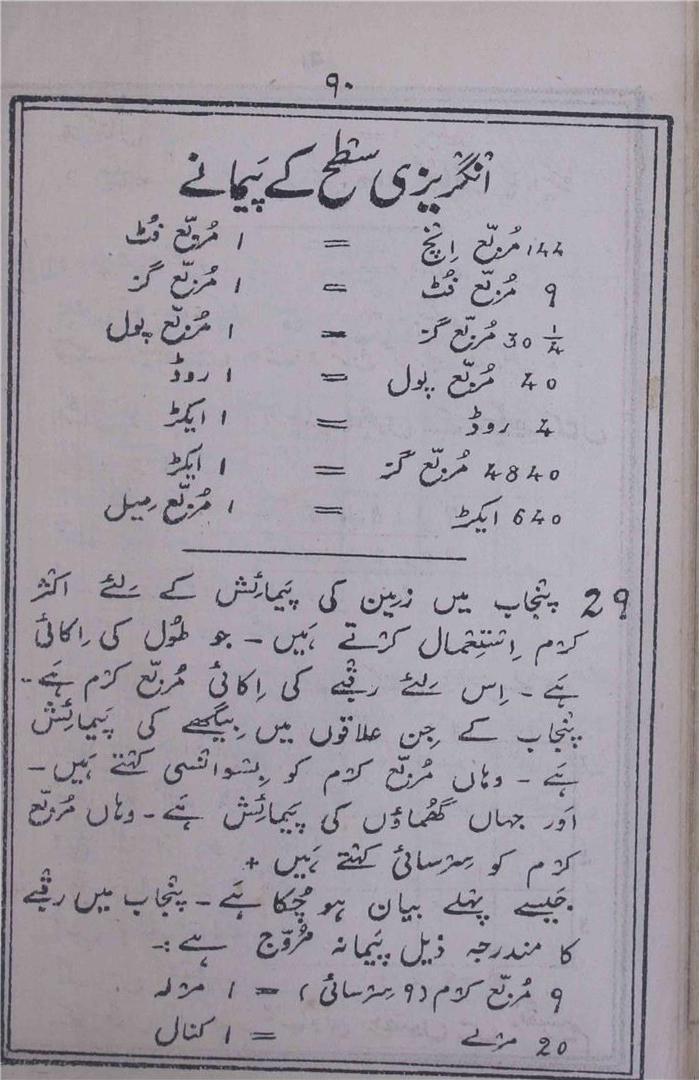 ۹۰
انگریزی سطح کے پَیمانے
144 مُربّع اِنچ = 1 مُربّع فُٹ
9 مُربّع فُٹ = 1 مُربّع گز
30 1/4 مُربّع گز = 1 مُربّع پول
40 مُربّع پول = 1 روڈ
4 روڈ = 1 ایکڑ
4840 مُربّع گز = 1 ایکڑ
640 ایکڑ = 1 مُربّع مِیل
29 پنجاب میں زمِین کی پَیمائِش کے لئے اکثر
کرم اِستِعمال کرتے ہَیں - جو طُول کی اِکائی
ہَے - اِس لئے رقبے کی اِکائی مُربّع کرم ہَے -
پنجاب کے جِن علاقوں میں بِیگھے کی پَیمائِش
ہَے - وہاں مُربّع کرم کو بِسوانسی کہتے ہَیں -
اَور جہاں گھُماؤں کی پَیمائِش ہَے - وہاں مُربّع
کرم کو سرسائی کہتے ہَیں +
جَیسے پہلے بیان ہو چُکا ہَے - پنجاب میں رقبے
کا مندرجہ ذیل پَیمانہ مُروّج ہے :-
9 مُربّع کرم (9 سرسائی) = 1 مرلہ
20 مرلے = 1 کنال